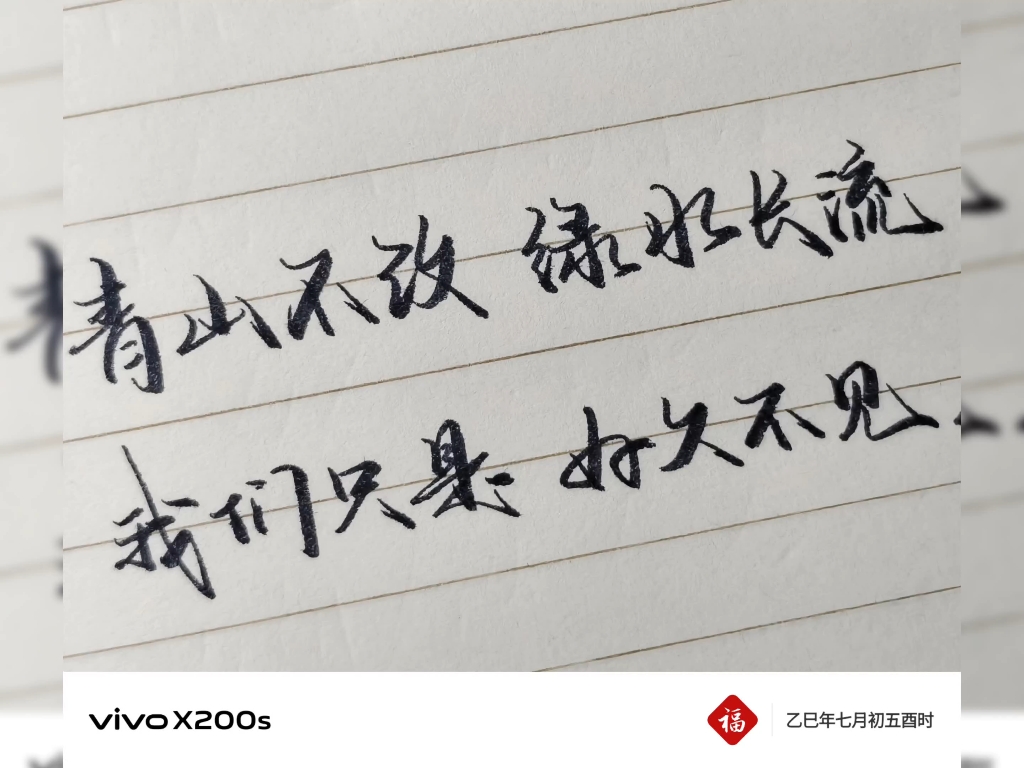 青山不改 绿水长流
我们只是 好久不见
vivo X200s
福
乙巳年七月初五酉时